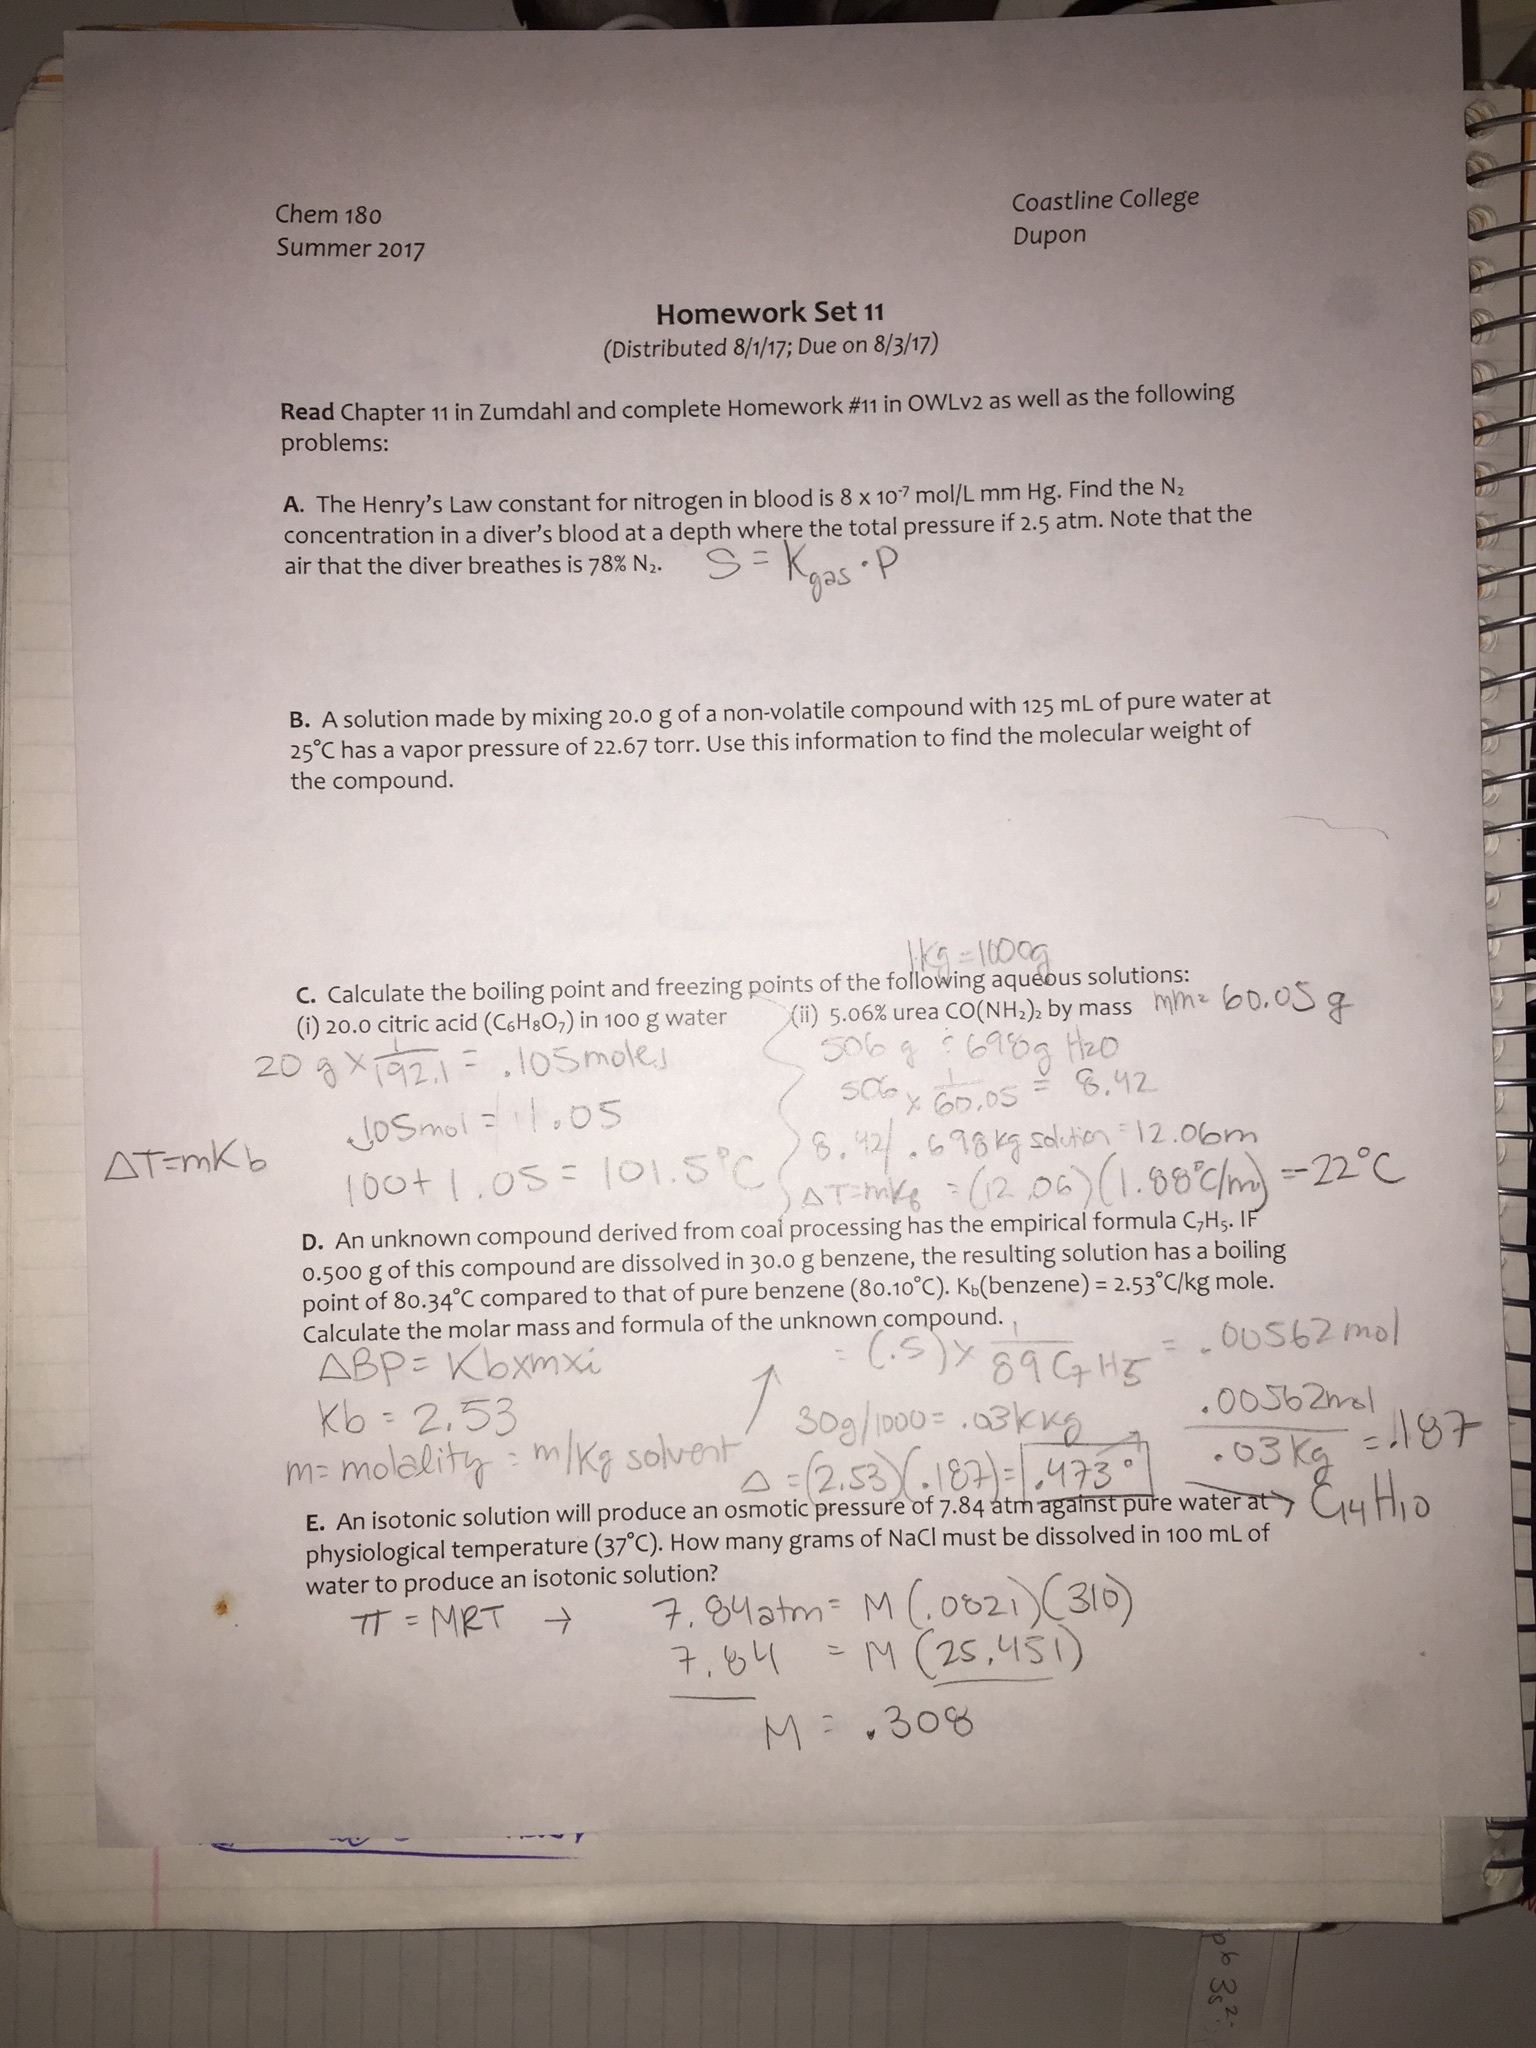 Chem 180
Summer 2017
Coastline College
Dupon
Homework Set 11
(Distributed 8/1/17; Due on 8/3/17)
Read Chapter 11 in Zumdahl and complete Homework #11 in OWLv2 as well as the following
problems:
A. The Henry's Law constant for nitrogen in blood is 8 x 10⁻⁷ mol/L mm Hg. Find the N₂
concentration in a diver's blood at a depth where the total pressure if 2.5 atm. Note that the
air that the diver breathes is 78% N₂.
S = Kgas · P
B. A solution made by mixing 20.0 g of a non-volatile compound with 125 mL of pure water at
25°C has a vapor pressure of 22.67 torr. Use this information to find the molecular weight of
the compound.
1kg = 1000g
C. Calculate the boiling point and freezing points of the following aqueous solutions:
(i) 20.0 citric acid (C₆H₈O₇) in 100 g water
(ii) 5.06% urea CO(NH₂)₂ by mass mm= 60.05 g
20 g x 1/192.1 = .105 moles
.105mol = 1.05
ΔT=mKb
100+ 1.05 = 101.5°C
506 g : 698g H2O
506 x 1/60.05 = 8.42
8.42/.698kg solution = 12.06m
ΔT=mKf = (12.06)(1.88°C/m) = -22°C
D. An unknown compound derived from coal processing has the empirical formula C₇H₅. IF
0.500 g of this compound are dissolved in 30.0 g benzene, the resulting solution has a boiling
point of 80.34°C compared to that of pure benzene (80.10°C). Kb(benzene) = 2.53°C/kg mole.
Calculate the molar mass and formula of the unknown compound.
= (.5) x 1/89 C7H5 = .00562 mol
ΔBP = Kbxmxi
Kb = 2.53
m= molality = m/Kg solvent
30g/1000 = .03kg
.00562mol/.03Kg = .187
Δ = (2.53)(.187) = .473°
C14H10
E. An isotonic solution will produce an osmotic pressure of 7.84 atm against pure water at
physiological temperature (37°C). How many grams of NaCl must be dissolved in 100 mL of
water to produce an isotonic solution?
π = MRT → 7.84atm = M (.0821)(310)
7.84 = M (25.451)
M = .308